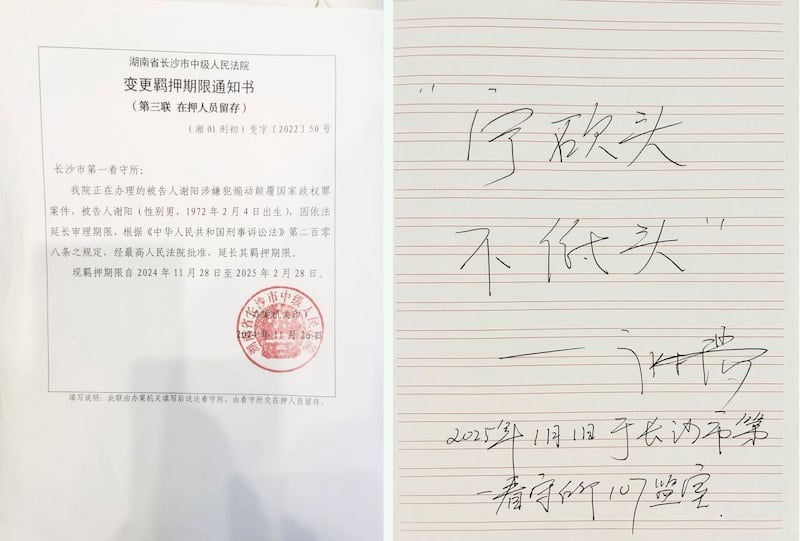 湖南省长沙市中级人民法院
变更羁押期限通知书
(第三联 在押人员留存)
(湘 01 刑初)变字〔2022〕50 号
长沙市第一看守所:
我院正在办理的被告人谢阳涉嫌犯煽动颠覆国家政权罪
案件，被告人谢阳(性别男，1972 年 2 月 4 日出生)，因依法
延长审理期限，根据《中华人民共和国刑事诉讼法》第二百零
八条之规定，经最高人民法院批准，延长其羁押期限。
现羁押期限自 2024 年 11 月 28 日至 2025 年 2 月 28 日。
湖南省长沙市中级人民法院
(办案机关印)
2024 年 11 月 26 日
填写说明：此联由办案机关填写后送达看守所，由看守所交在押人员留存。
"宁砍头
不低头"
——谢阳
2025年1月1日于长沙市第
一看守所107监室.